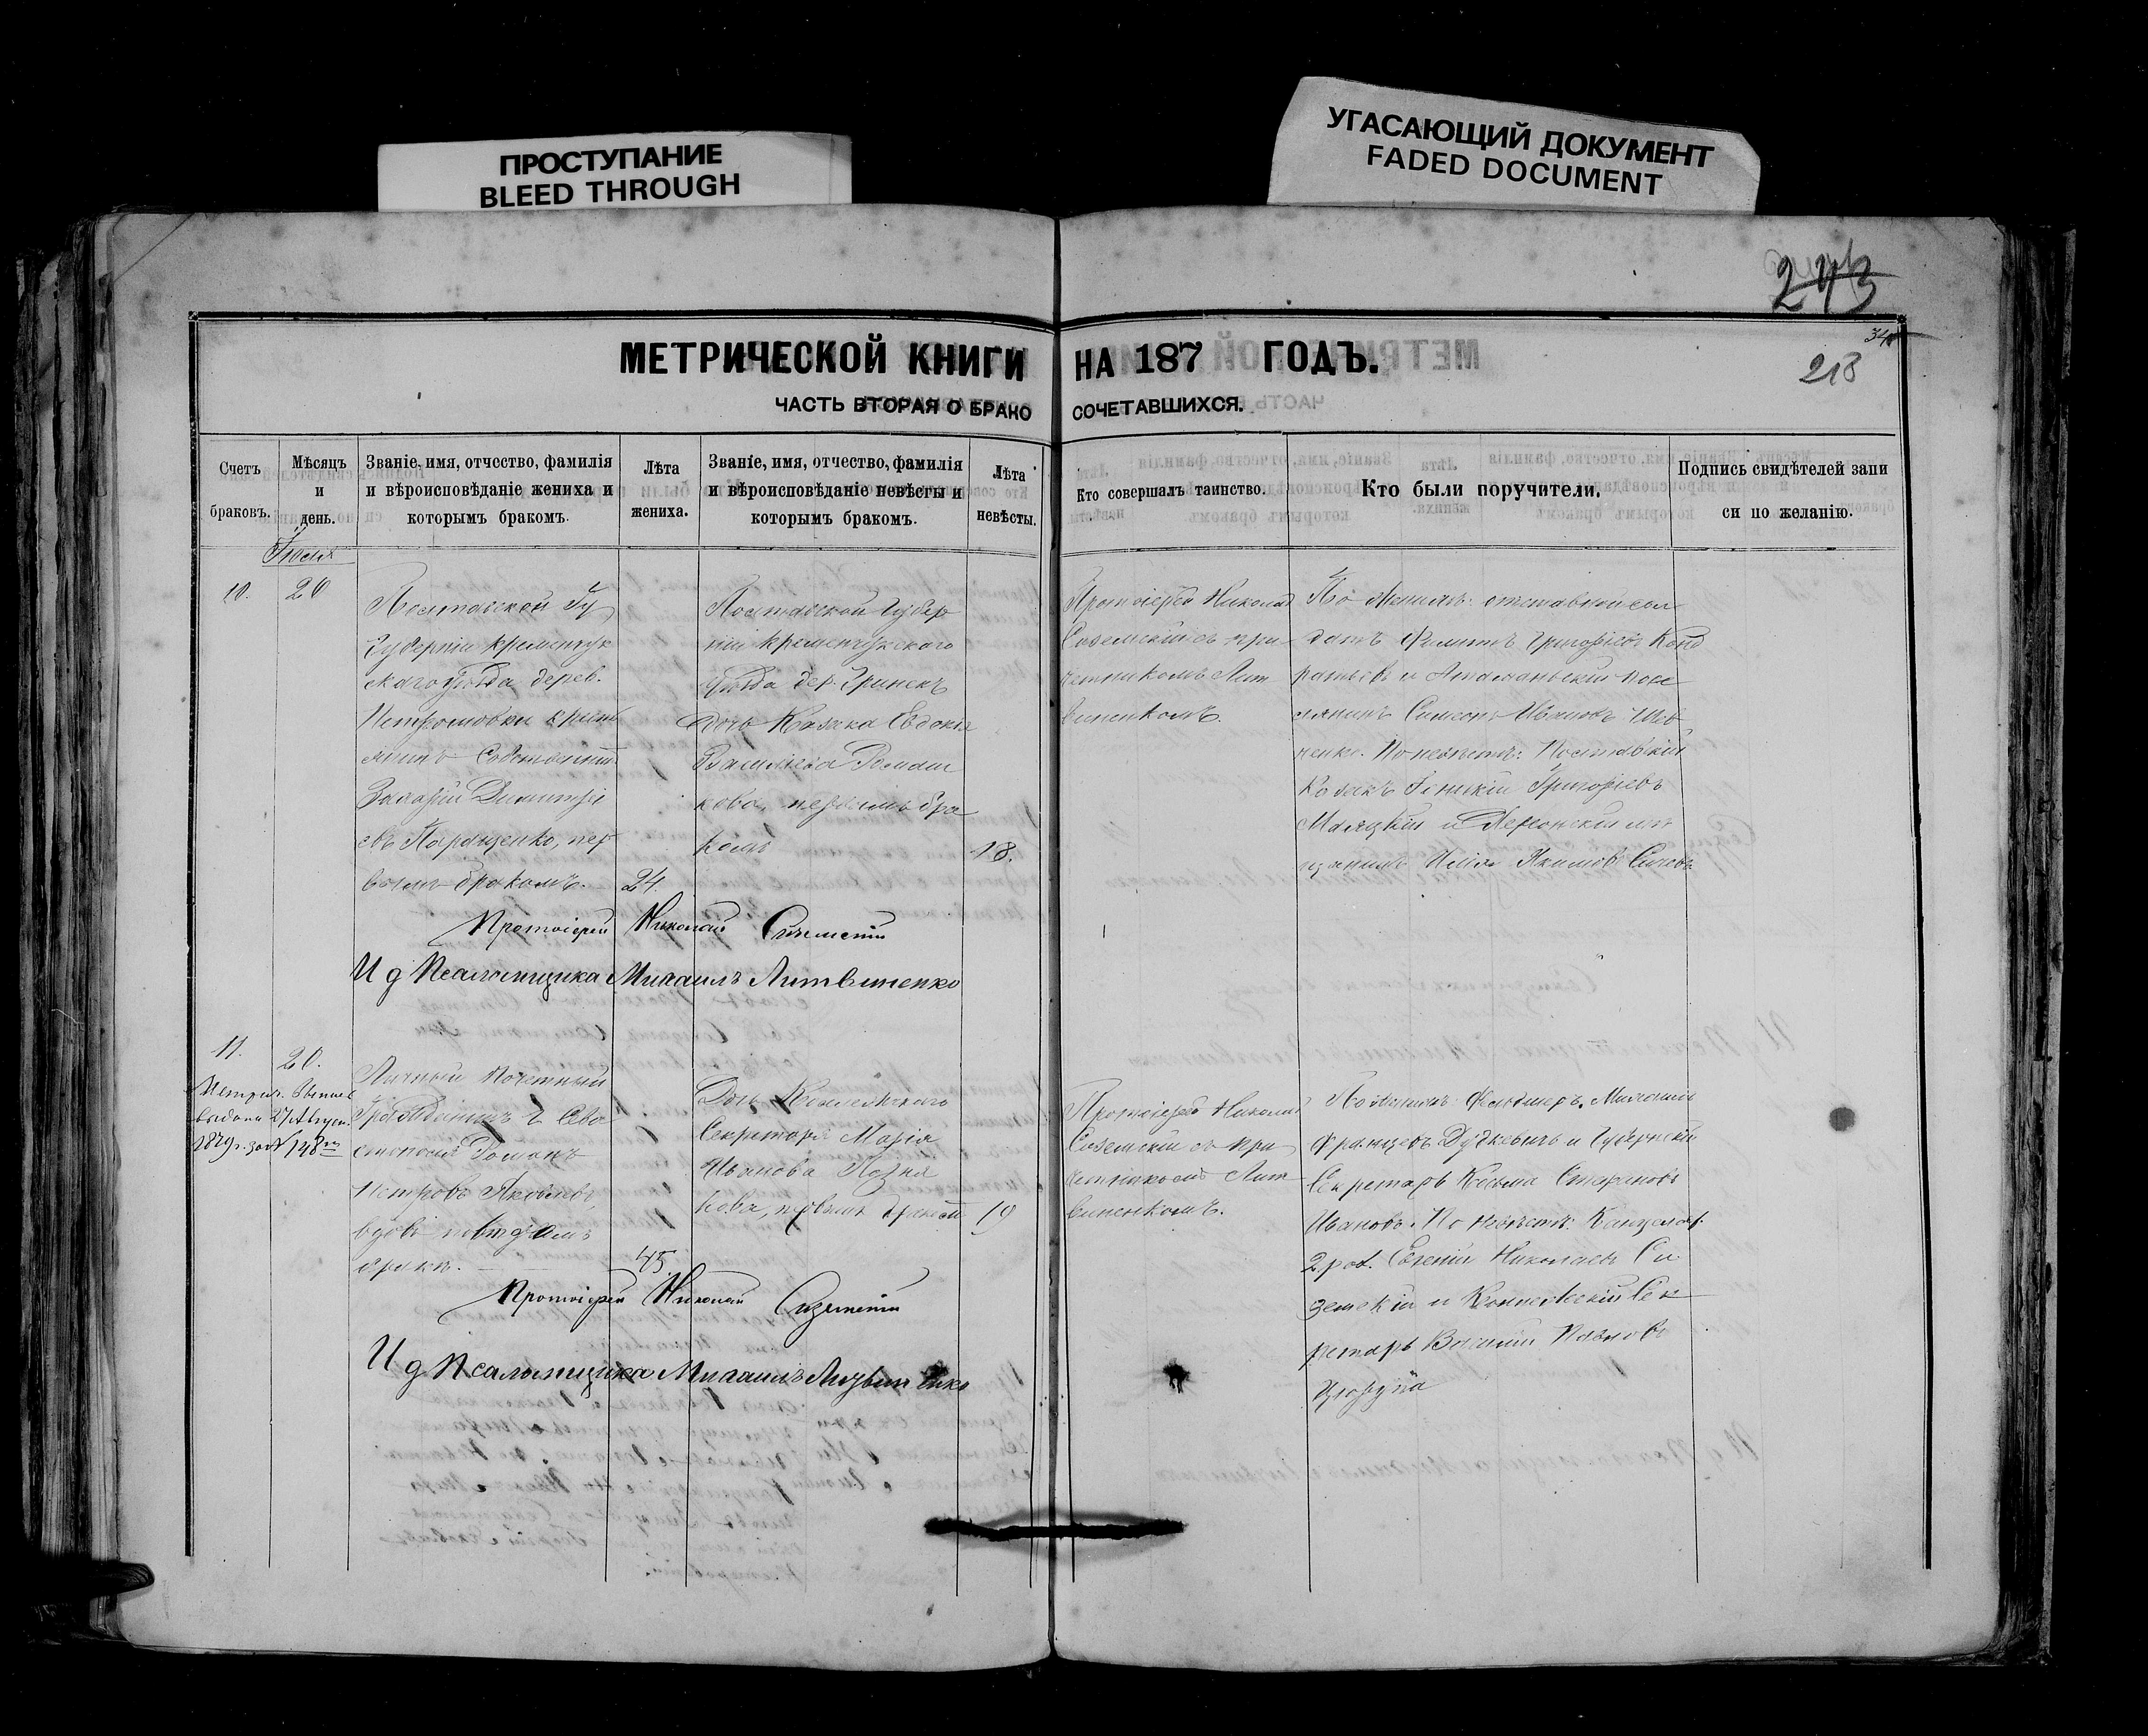 ПРОСТУПАНИЕ
BLEED THROUGH
УГАСАЮЩИЙ ДОКУМЕНТ
FADED DOCUMENT
243
218
МЕТРИЧЕСКОЙ КНИГИ НА 187 ГОДЪ.
ЧАСТЬ ВТОРАЯ О БРАКОСОЧЕТАВШИХСЯ.
Счетъ браковъ.
Мѣсяцъ и день.
Званіе, имя, отчество, фамилія
и вѣроисповѣданіе жениха и
которымъ бракомъ.
Лѣта
жениха.
Званіе, имя, отчество, фамилія
и вѣроисповѣданіе невѣсты и
которымъ бракомъ.
Лѣта
невѣсты.
Кто совершалъ таинство.
Кто были поручители.
Подпись свидѣтелей запи
си по желанію.
10.
20
Полтавской Гу
Губерніи Кременчуг
скаго Уѣзда дерев.
крестъ
янинъ Собственникъ
Захарій Димитрі
евъ пер
вымъ бракомъ.
24.
Полтавской Губер
ніи Кременчугскаго
Уѣзда дер.
дочь Козака Евдокія
Васильева Ромаш
кова, первымъ бра
комъ
18.
Протоіерей Николай
Сиземскій съ при
четникомъ Лит
виненкомъ.
По женихѣ: отставной сол
датъ Филиппъ Григорьевъ Конд
ратьевъ и посе
лянинъ Симеонъ Ивановъ Шев
ченко. По невѣстѣ: Полтавскій
Козакъ Григорьевъ
и Херсонскій мѣ
щанинъ Илія Якимовъ
Протоіерей Николай Сиземскій
И д Псаломщика Михаилъ Литвиненко
11.
20.
Метрич. выпись
выдана 27 Август.
1879 г. за № 148
Личный Почетный
Гражданинъ г. Сева
стополя Романъ
Петровъ Яковлевъ,
вдовъ вторымъ
бракъ.
45.
Дочь Коллежскаго
Секретаря Марія
Иванова Позня
кова, первымъ бракомъ
19
Протоіерей Николай
Сиземскій съ при
четникомъ Лит
виненкомъ.
По женихѣ: Фельдшеръ
Францевъ Дудкевичъ и Губернскій
Секретарь Косьма Стефановъ
Ивановъ. По невѣстѣ: Канцеляр.
2 раз. Евгеній Николаевъ Си
земскій и Коллежскій Сек
ретарь Василій Павловъ
Цюрупа
Протоіерей Николай Сиземскій
И д Псаломщика Михаилъ Литвиненко